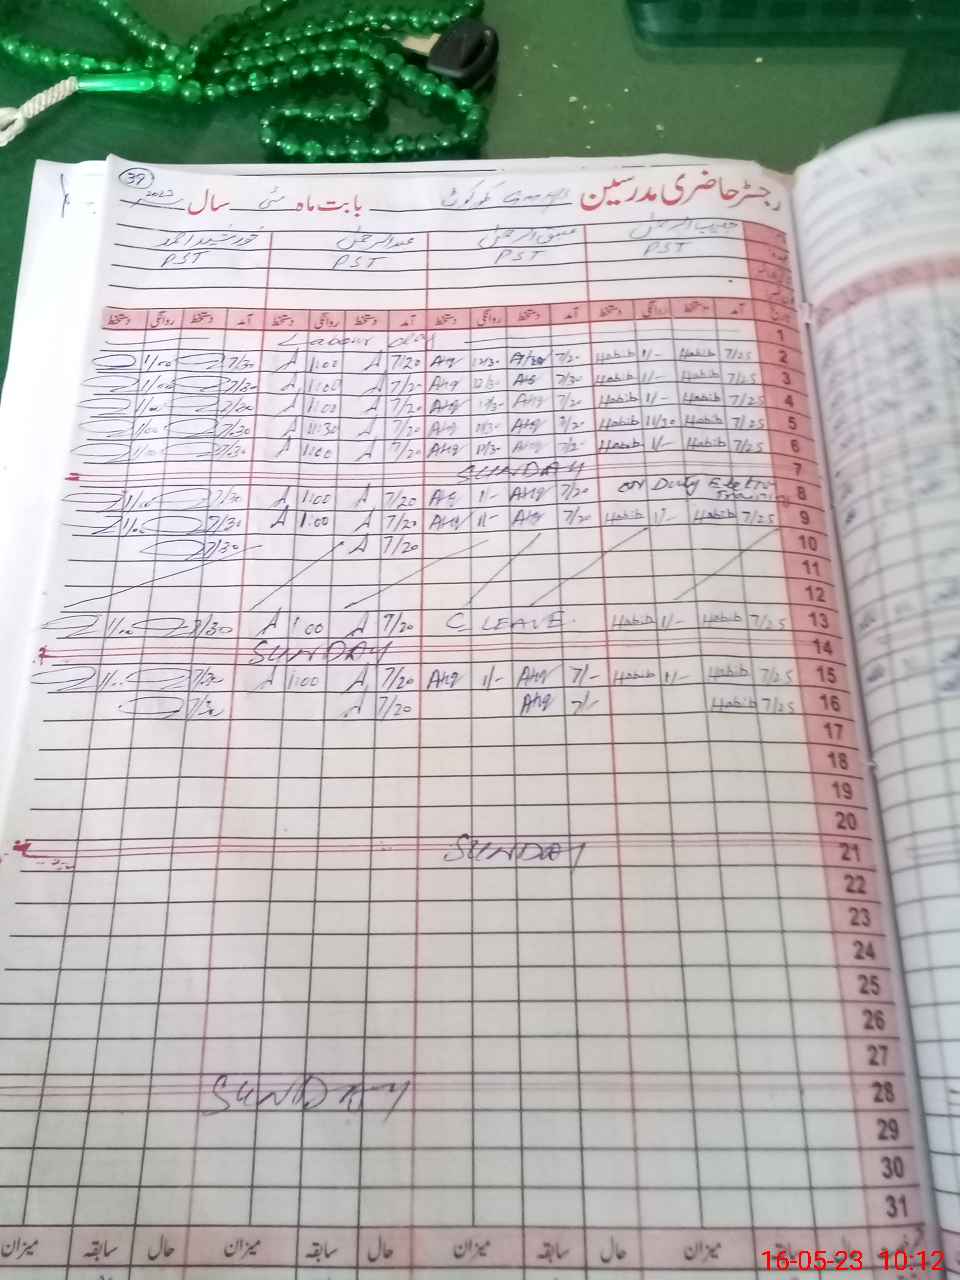 39
رجسٹر حاضری مدرسین بابت ماہ مئی سال 2023
حبیب الرحمٰن عتیق الرحمٰن عبدالرحمٰن خورشید احمد
PST PST PST PST
آمد دستخط روانگی دستخط آمد دستخط روانگی دستخط آمد دستخط روانگی دستخط آمد دستخط روانگی دستخط
Labour Day 1
1/00 7/30 A 1:00 A 7/20 Ahq 12/30 7/20 Habib 1/- Habib 7/25 2
1/00 7/30 A 1:00 A 7/20 Ahq 12/30 Ahq 7/20 Habib 1/- Habib 7/25 3
1/00 7/30 A 1:00 A 7/20 Ahq Ahq 7/20 Habib 1/- Habib 7/25 4
1/00 7/30 A 11:30 A 7/20 Ahq 11/30 Ahq 7/20 Habib 11/30 Habib 7/25 5
1/00 7/30 A 1:00 A 7/20 Ahq Ahq 7/20 Habib 1/- Habib 7/25 6
SUNDAY 7
1/00 7/30 A 1:00 A 7/20 Ahq 1/- Ahq 7/20 on Duty Election Training 8
1/00 7/30 A 1:00 A 7/20 Ahq 1/- Ahq 7/20 Habib 1/- Habib 7/25 9
7/30 A 7/20 10
11
12
1/00 7/30 A 1:00 A 7/20 C LEAVE. Habib 1/- Habib 7/25 13
SUNDAY 14
1/00 7/30 A 1:00 A 7/20 Ahq 1/- Ahq 7/- Habib 1/- Habib 7/25 15
7/30 A 7/20 Ahq 7/- Habib 7/25 16
17
18
19
20
SUNDAY 21
22
23
24
25
26
27
SUNDAY 28
29
30
31
حال سابقہ میزان حال سابقہ میزان حال سابقہ میزان
16-05-23 10:12